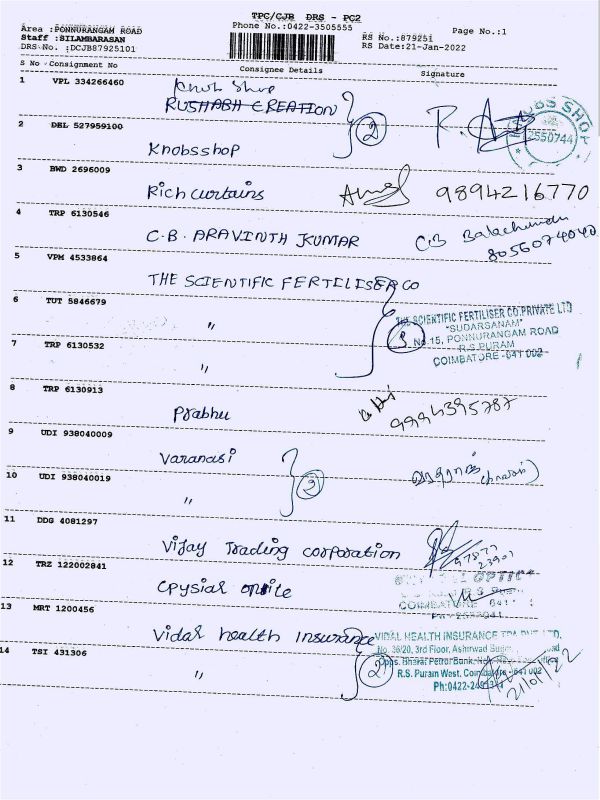 TPC/CJB DRS - PC2
Area :PONNURANGAM ROAD Phone No.:0422-3505555 Page No.:1
Staff :SILAMBARASAN RS No.:879251
DRS No. :DCJB87925101 RS Date:21-Jan-2022
S No Consignment No Consignee Details Signature
1 VPL 334266460 Knob Shop
RUSHABH CREATION
2
KNOBS SHOP
2550744
2 DEL 527959100
Knobsshop
3 BWD 2696009
Rich curtains 9894216770
4 TRP 6130546
C.B. ARAVINTH KUMAR C.B Balachandu
8056074040
5 VPM 4533864
THE SCIENTIFIC FERTILISER CO
6 TUT 5846679
"
THE SCIENTIFIC FERTILISER CO.PRIVATE LTD
"SUDARSANAM"
No.15, PONNURANGAM ROAD
R.S.PURAM
COIMBATORE - 641 002
3
7 TRP 6130532
"
8 TRP 6130913
Prabhu 9994395787
9 UDI 938040009
Varanasi
2
10 UDI 938040019
"
11 DDG 4081297
Vijay Trading corporation
12 TRZ 122002841
OPTIC
COIMBATORE 641
13 MRT 1200456
Vidal health insurance
VIDAL HEALTH INSURANCE TPA PVT. LTD.
No. 36/20, 3rd Floor, Ashirwad
Opps. Bharat Petrol Bunk,
R.S. Puram West, Coimbatore - 641 002
Ph:0422-
21/01/22
14 TSI 431306
"
2